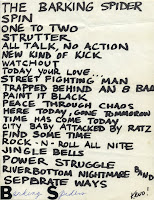 THE BARKING SPIDER
SPIN
ONE TO TWO
STRUTTER
ALL TALK, NO ACTION
NEW KIND OF KICK
WATCHOUT
TODAY YOUR LOVE...
STREET FIGHTING MAN
TRAPPED BEHIND AN 8 BALL
PAINT IT BLACK
PEACE THROUGH CHAOS
HERE TODAY, GONE TOMMOROW
TIME HAS COME TODAY
CITY BABY ATTACKED BY RATZ
FIND SOME TIME
ROCK-N-ROLL ALL NITE
JINGLE BELLS
POWER STRUGGLE
RIVERBOTTOM NIGHTMARE BAND
SEPERATE WAYS
Barking Spiders